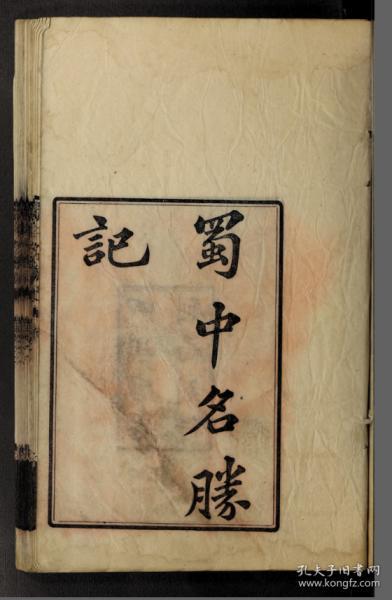 蜀中名勝
記
孔夫子旧书网
www.kongfz.com